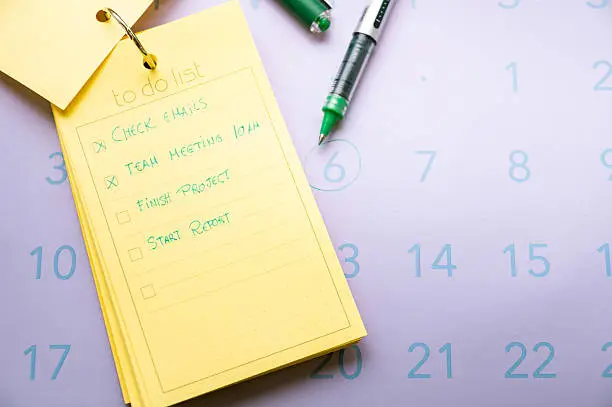 to do list
CHECK EMAILS
TEAM MEETING 10 AM
FINISH PROJECT
START REPORT
1 2
3 6 7 8 9
10 3 14 15
17 20 21 22